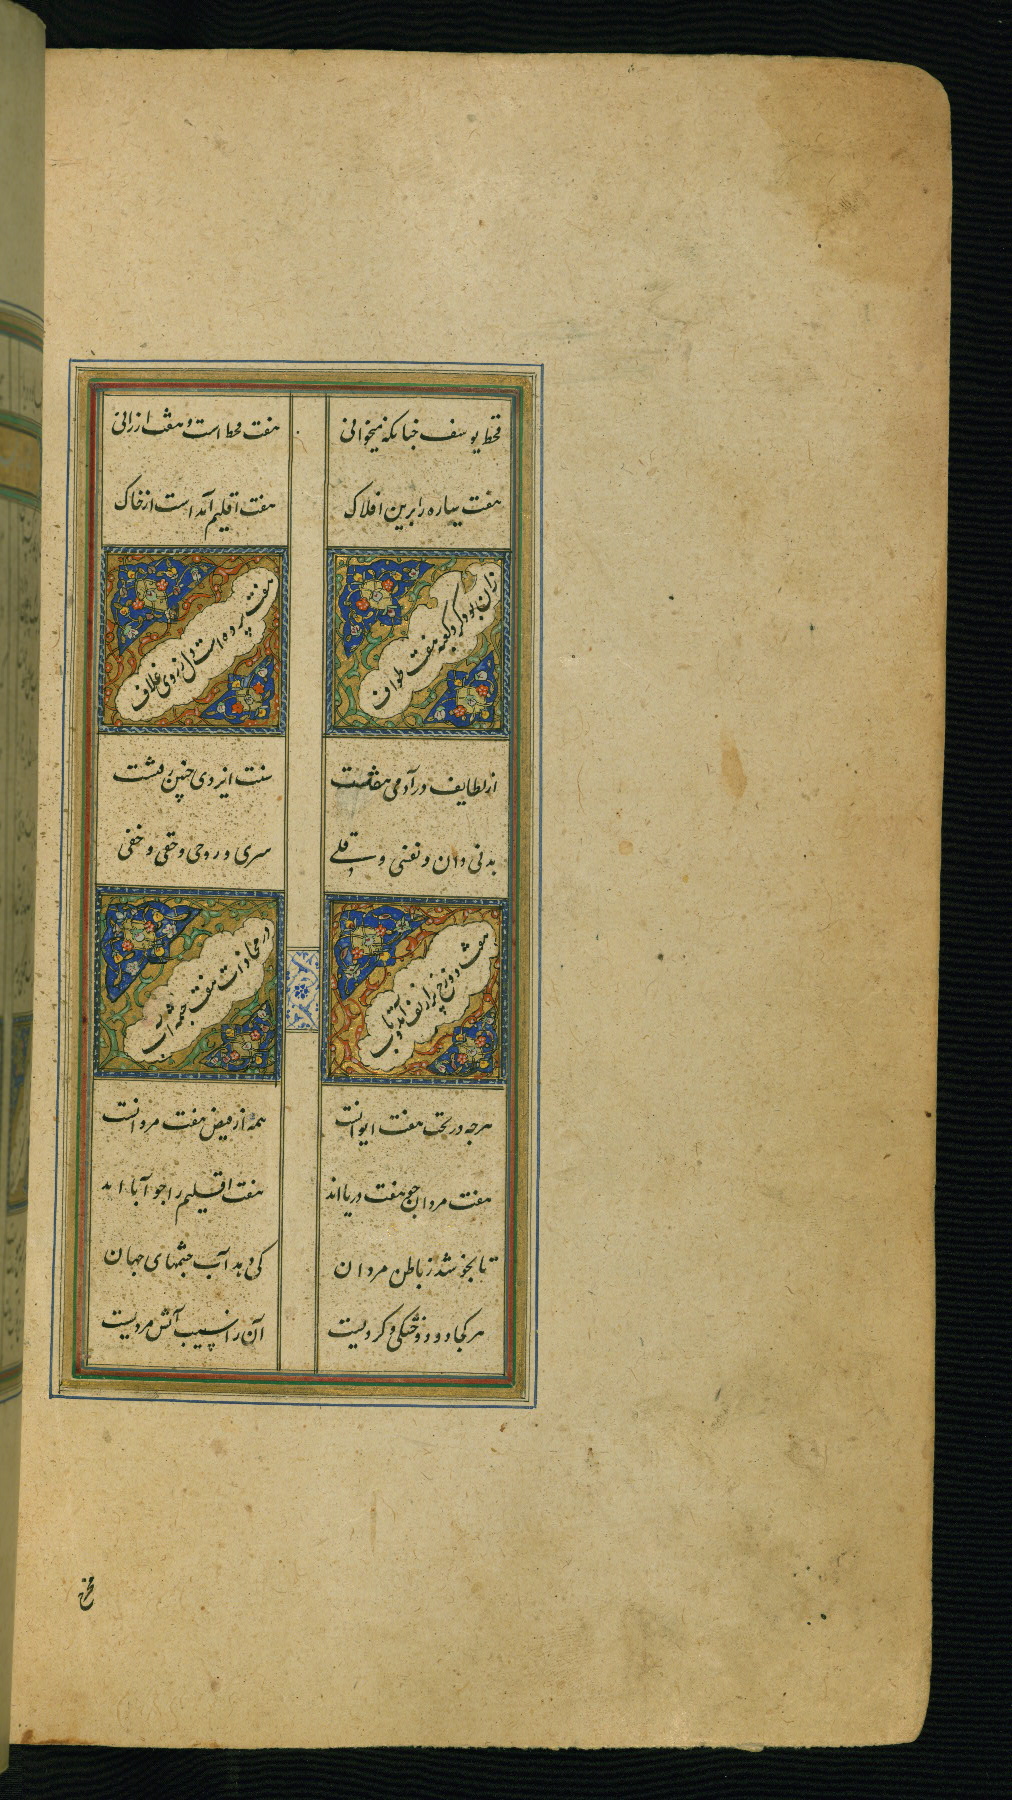 قحط یوسف چنانکه میخوانی
هفت قحط است و هفت ارزانی
هفت سیاره را برین افلاک
هفت اقلیم آمد است از خاک
زان بود کرد کعبه هفت طواف
هفت پرده است دل ز روی غلاف
از لطایف در آدمی هفتست
سنت ایزدی چنین رفتست
بدنی دان و نفسی و قلبی
سری و روحی و حقی و خفی
هفت دوزخ
در محاذات هفت چشمه آب
هرچه در تحت هفت ایوانست
همه از فیض هفت مردانست
هفت مردان چو هفت دریااند
هفت اقلیم را چو آبااند
تا بجوشد ز باطن مردان
کی دهد آب چشمهای جهان
هر کجا دود و خشکی و کردیست
آن را نسیب آتش مردیست